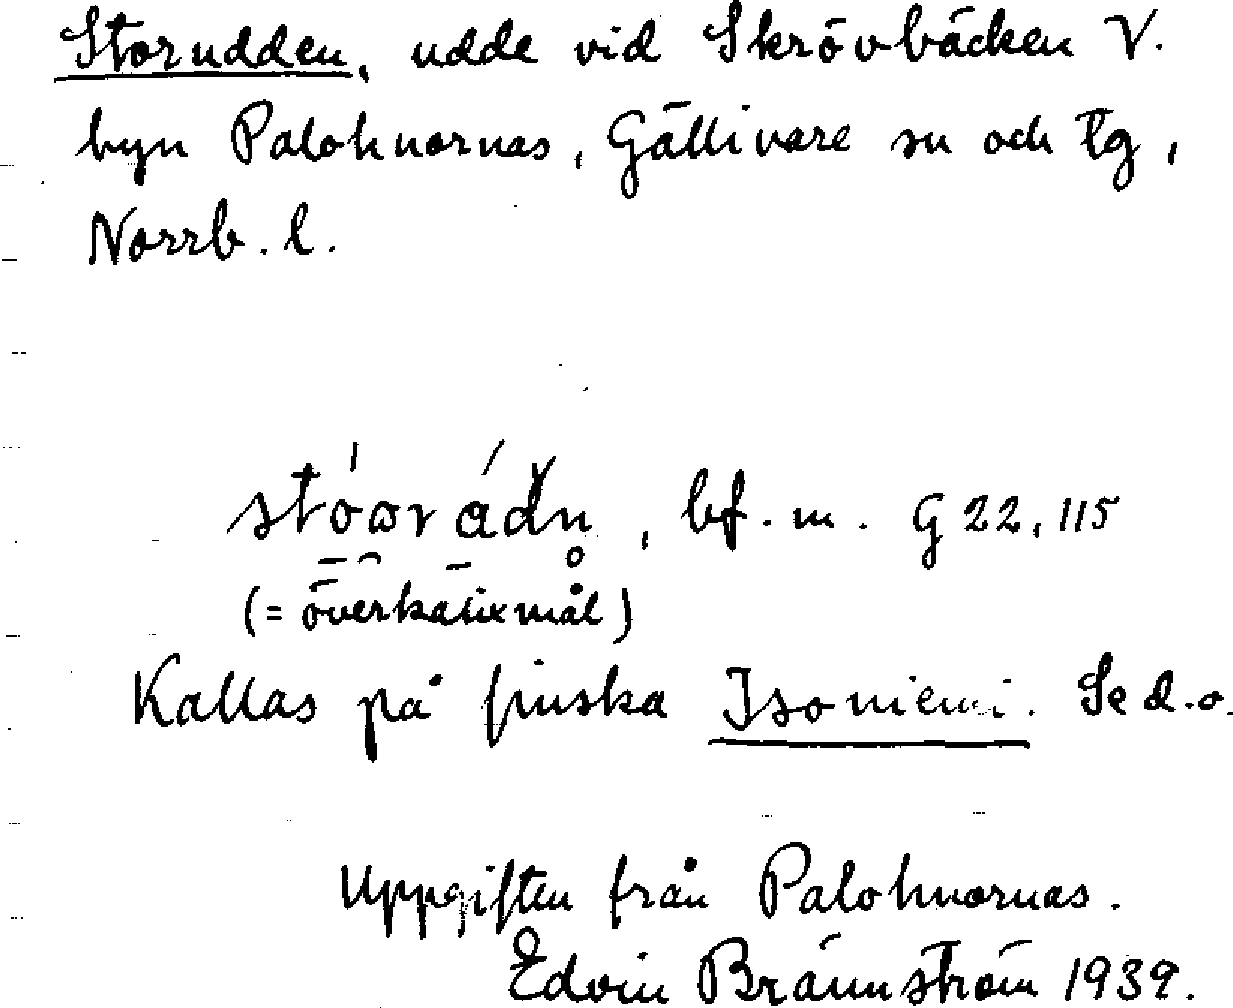 Storudden, udde vid Skrövbäcken V.
byn Palohuornas, Gällivare sn och tg,
Norrb. l.
bf. m. G 22, 115
(= överkalixmål)
Kallas på finska Isoniemi. Se d.o.
Uppgiften från Palohuornas.
Edvin Brännström 1939.